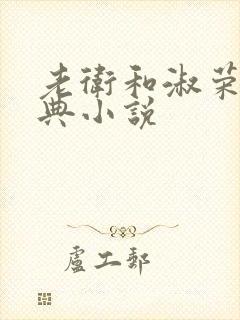 老衛和淑荣
典小説
盧工郵